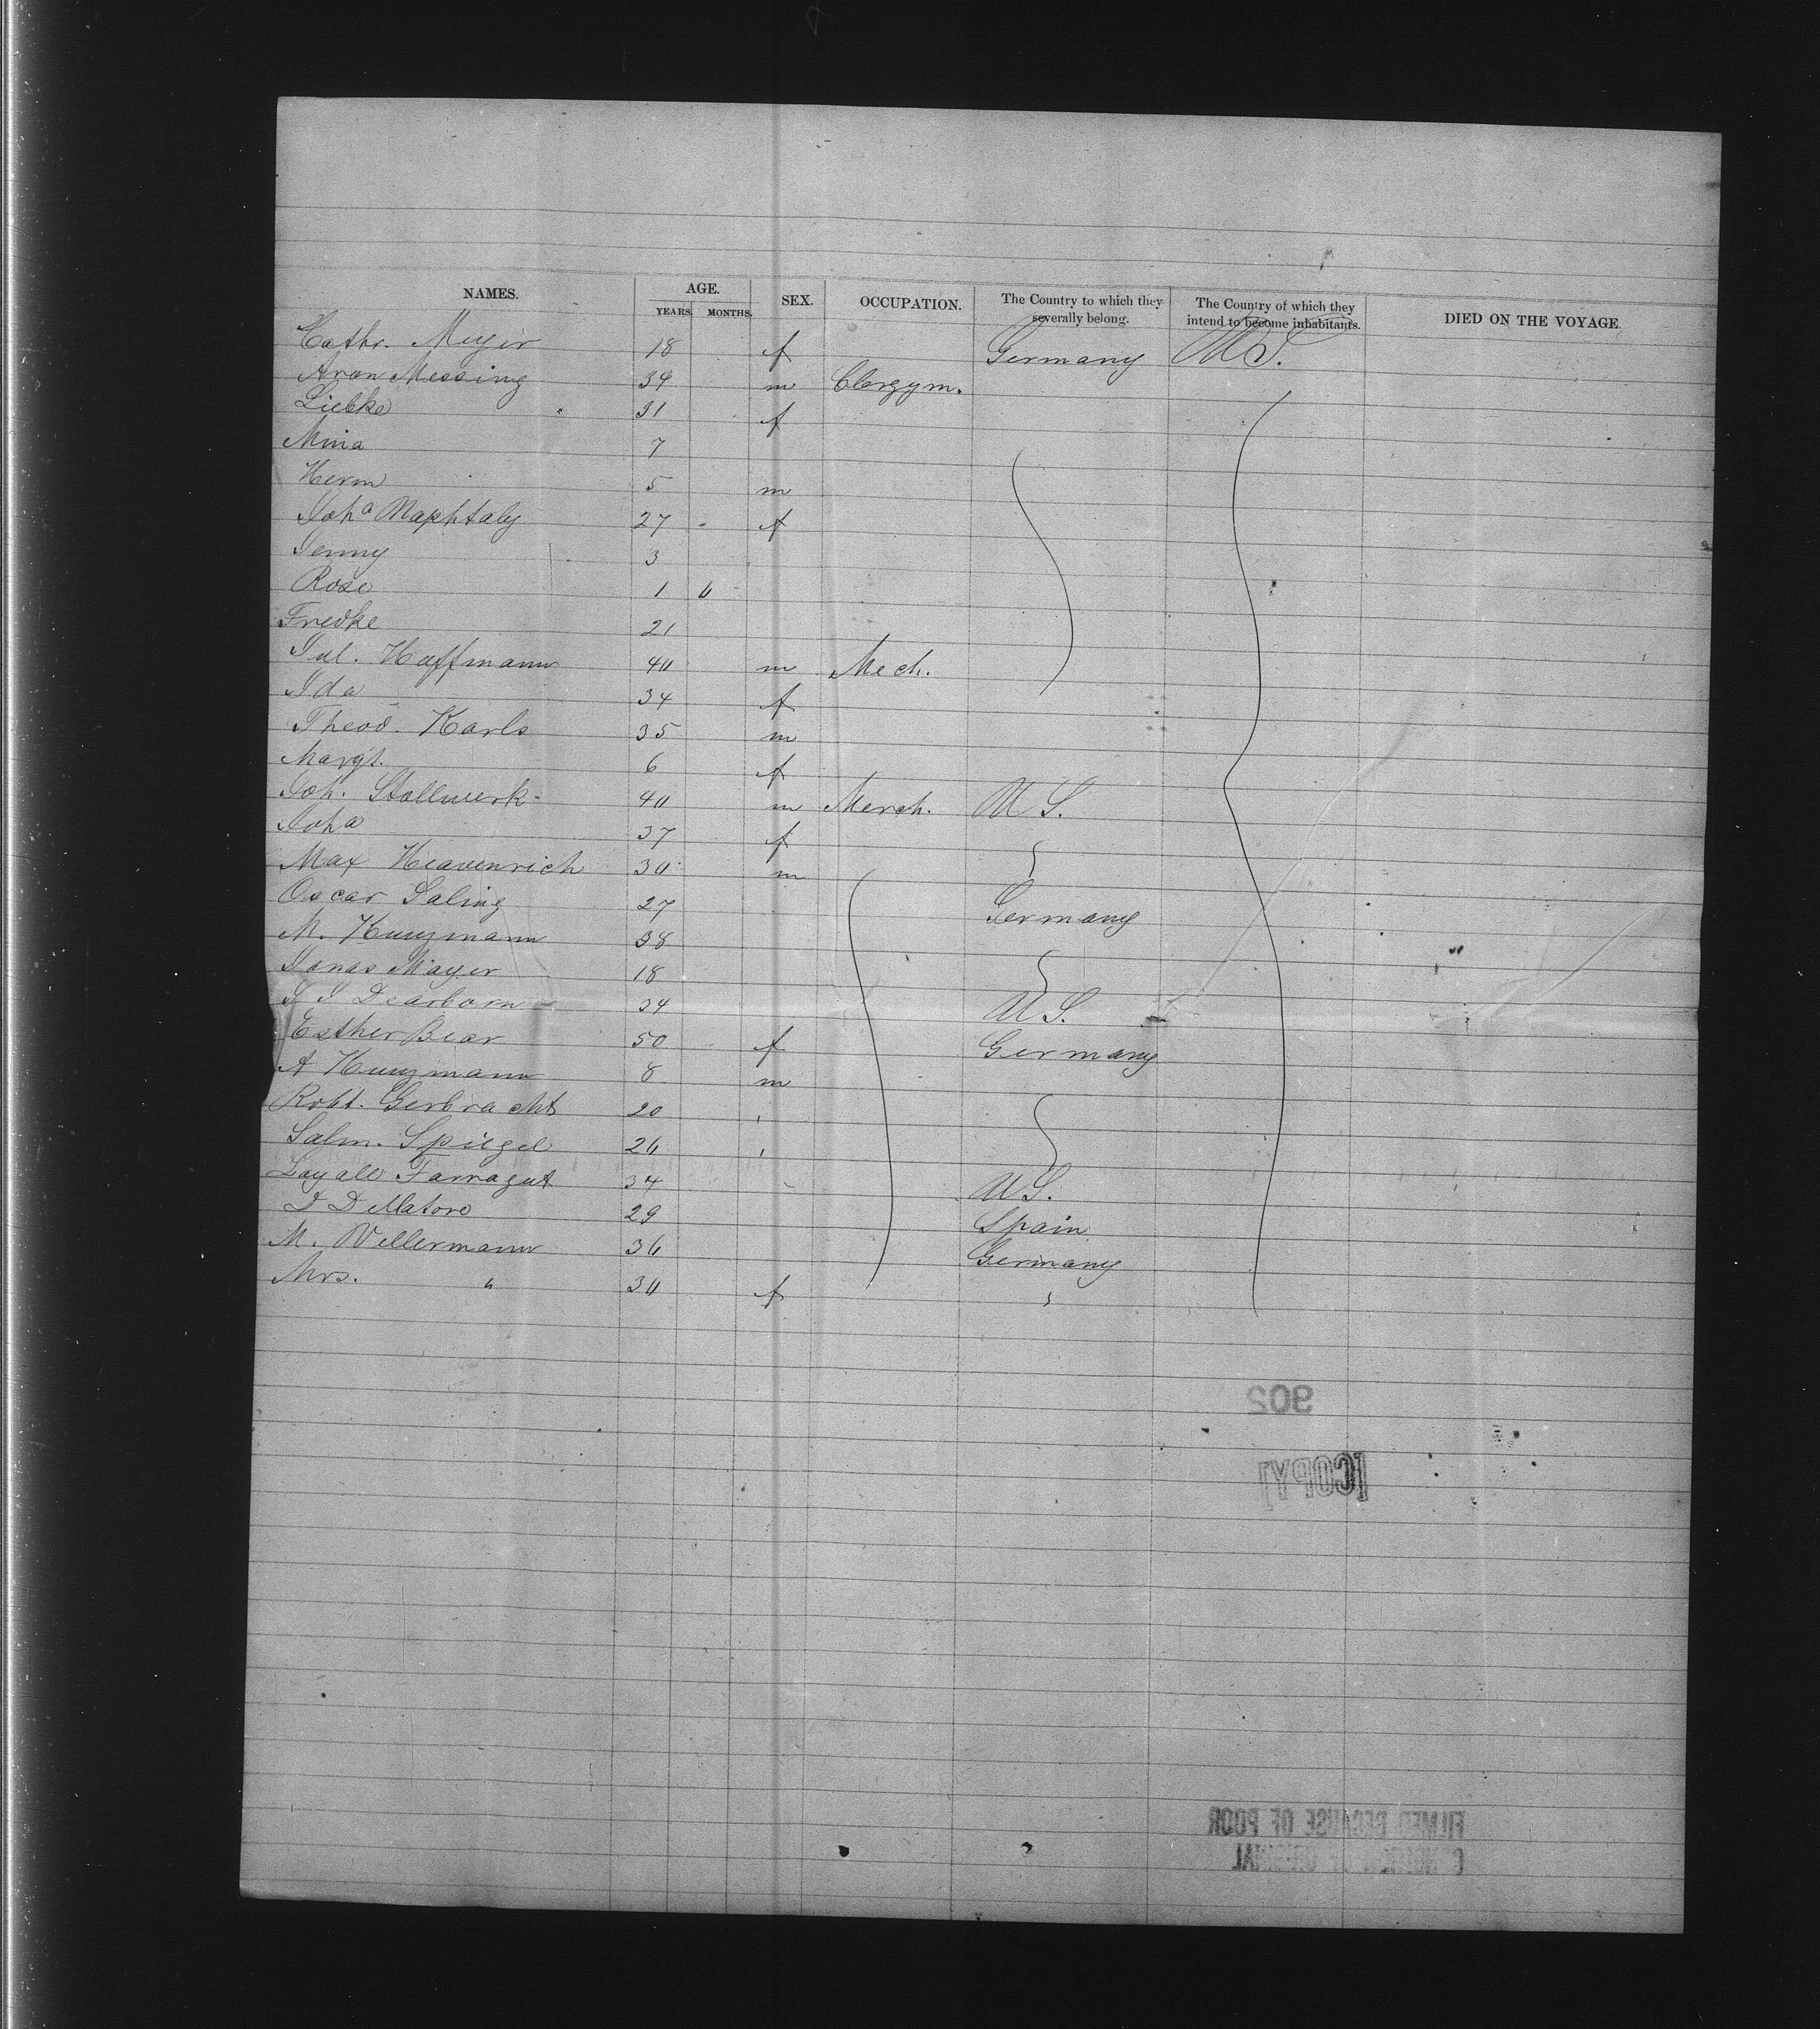 NAMES. AGE. SEX. OCCUPATION. The Country to which they severally belong. The Country of which they intend to become inhabitants. DIED ON THE VOYAGE.
YEARS. MONTHS.
Cathr. Meyer 18 f Germany U S.
Aron Messing 34 m Clergym.
Liebke 31 f
Mina 7
Herm 5 m
Joha Naphtaly 27 - f
Jenny 3
Rose 1
Fredke 21
Jul. Hoffmann 40 m Mech.
Ida 34 f
Theod. Karls 35 m
Margt. 6 f
Joh. Stollwerk 40 m Merch. U S.
Joha 37 f
Max Heavenrich 30 m
Oscar Saling 27 Germany
M. Kunzmann 38
Jonas Mayer 18
Dearborn 34 U S.
Esther Bear 50 f Germany
A Kunzmann 8 m
Robt. Gerbracht 20
Salm. Spiegel 26
Loyall Farragut 34 U S.
D Dellatore 29 Spain
M. Wellermann 36 Germany
Mrs. " 30 f "
902
[COPY]
FILMED BECAUSE OF POOR
CONDITION OF ORIGINAL